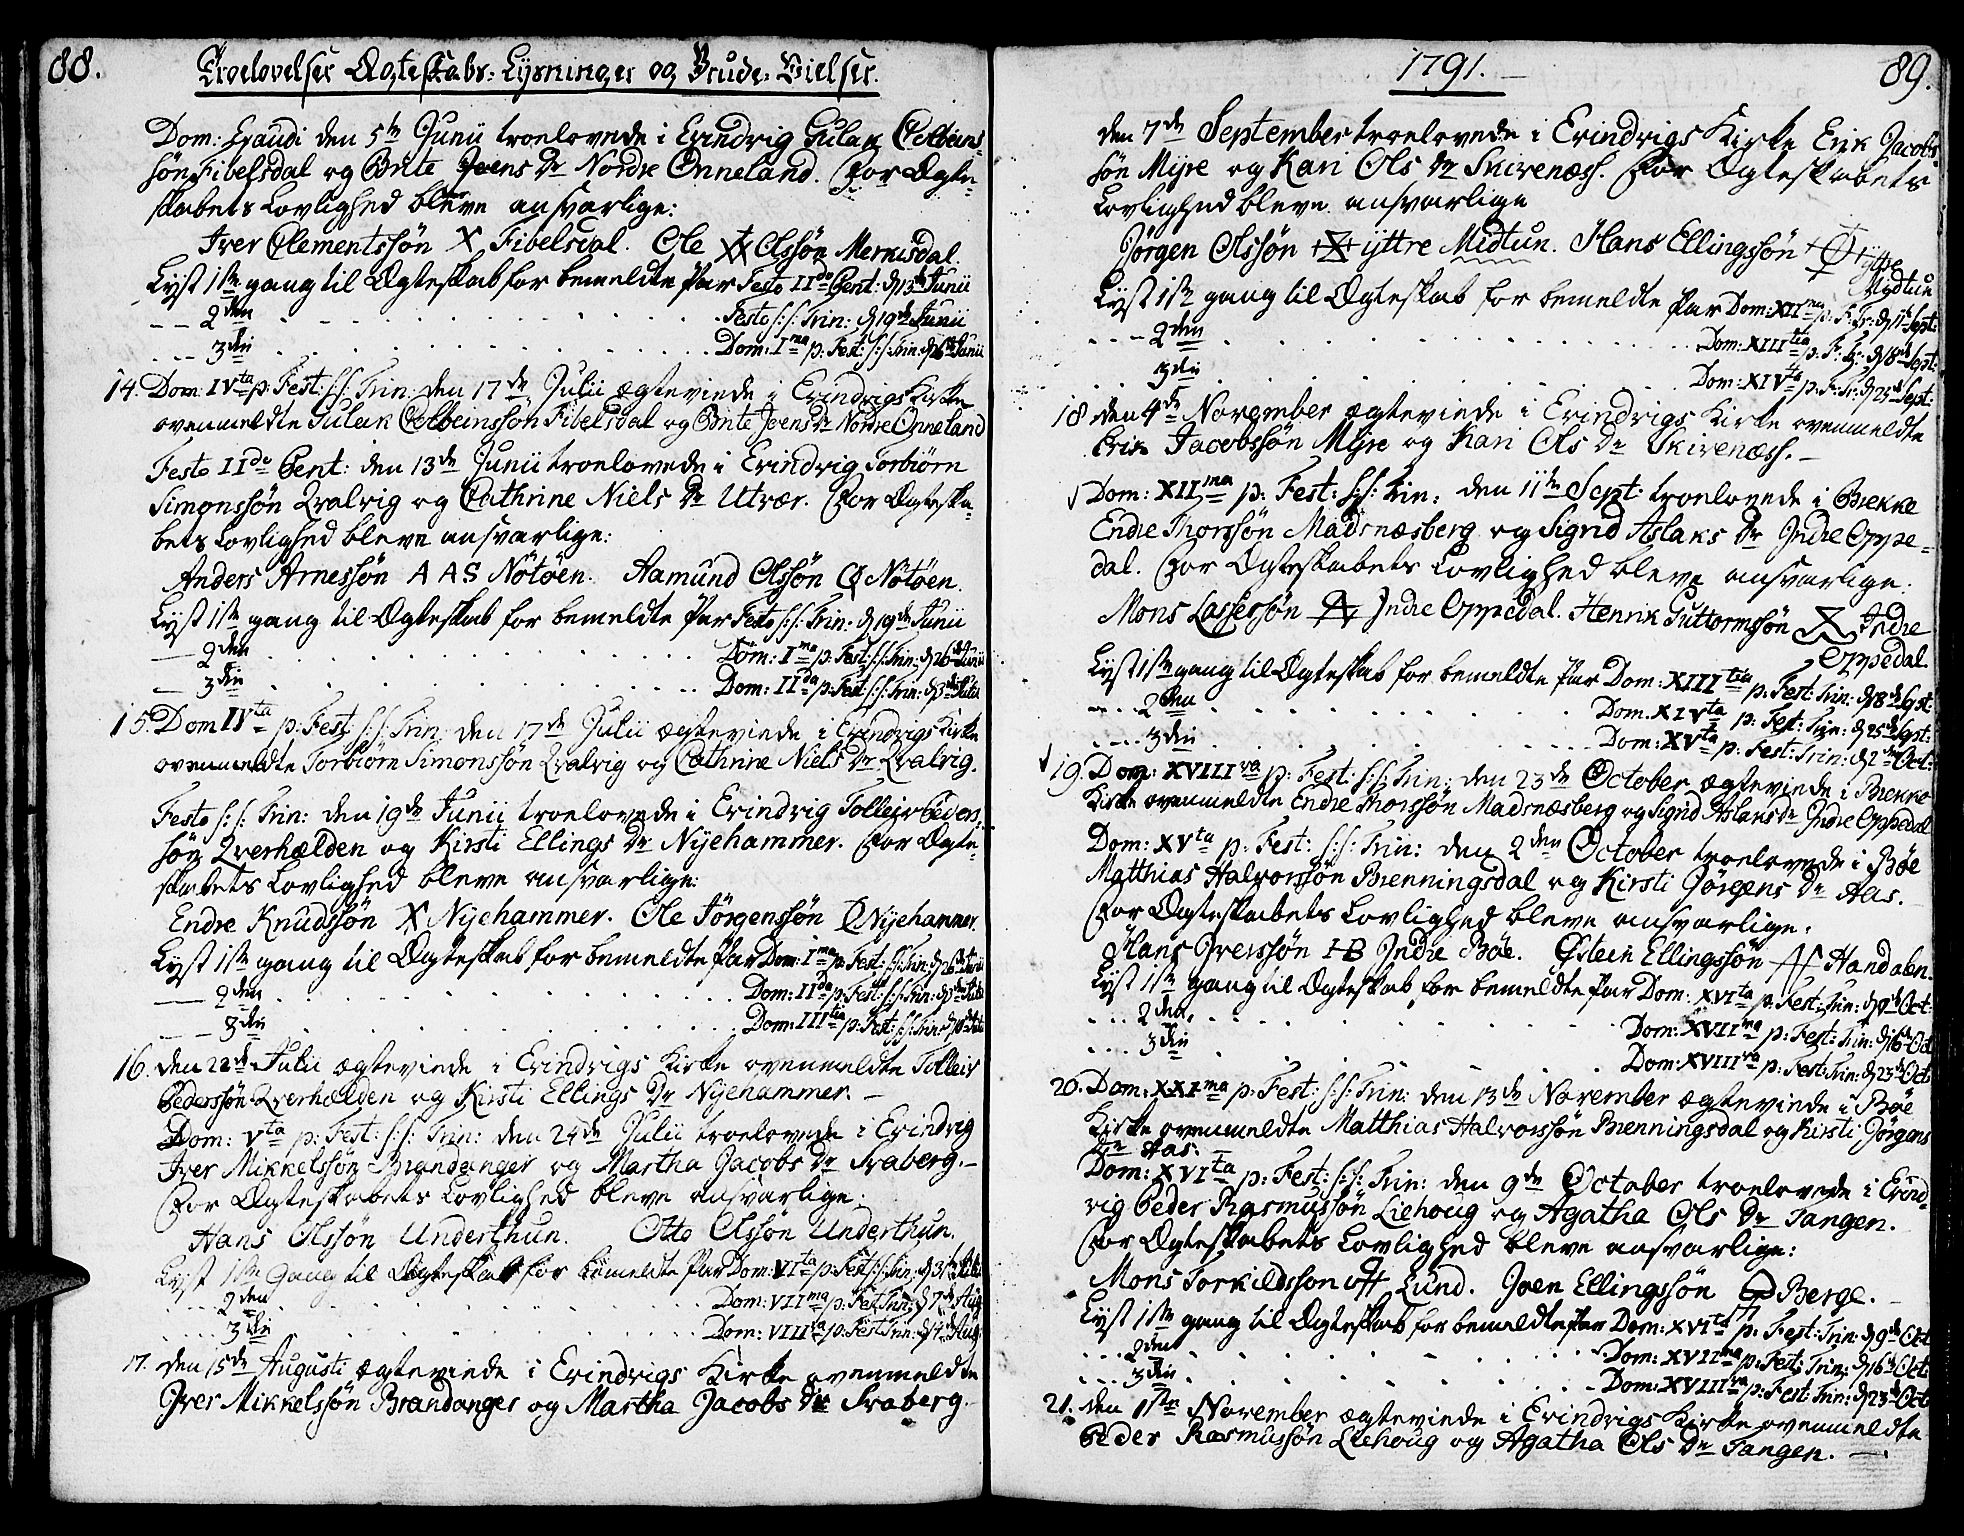 88.
Troelovelser Ægteskabs-Lysninger og Brude-Vielser.
Dom: Exaudi den 5te Junii troelovede i Evindvig Gulak Colbens-
søn Fibelsdal og Brite Joens Dr Nordre Onneland. For Ægte-
skabets Lovlighed bleve ansvarlige:
Iver Clementssøn X Fibelsdal. Ole Olssøn Merkisdal.
Lyst 1ste gang til Ægteskab for bemeldte Par Festo IIdo Pent: d 13de Junii
2den Festo S:S: Trin: d 19de Junii
3die Dom: Ima p: Fest: S:S: Trin: d 26de Junii
14. Dom: IVta p: Fest: S:S: Trin: den 17de Julii ægteviede i Evindvigs Kirke
ovenmeldte Gulak Colbeinssøn Fibelsdal og Brite Joens Dr Nordre Onneland
Festo IIdo Pent: den 13de Junii troelovede i Evindvig Torbiørn
Simonssøn Qvalvig og Cathrine Niels Dr Utvær. For Ægteska-
bets Lovlighed bleve ansvarlige:
Anders Arnessøn AAS Nötöen. Aamund Olssøn Nötöen.
Lyst 1ste gang til Ægteskab for bemeldte Par Festo S:S: Trin: d 19de Junii
2den Dom: Ima p: Fest: S:S: Trin: d 26de Junii
3die Dom: IIda p: Fest: S:S: Trin: d 3die Julii
15. Dom IVta p: Fest: S:S: Trin: den 17de Julii ægteviede i Evindvigs Kirke
ovenmeldte Torbiørn Simonssøn Qvalvig og Cathrine Niels Dr Qvalvig.
Festo S:S: Trin: den 19de Junii troelovede i Evindvig Tolleiv Peders-
søn Qverhælden og Kirsti Ellings Dr Nyehammer. For Ægte-
skabets Lovlighed bleve ansvarlige:
Endre Knudssøn X Nyehammer. Ole Jörgenssøn Nyehammer.
Lyst 1ste gang til Ægteskab for bemeldte Par Dom: Ima p: Fest: S:S: Trin: d 26de Junii
2den Dom: IIda p: Fest: S:S: Trin: d 3die Julii
3die Dom: IIItia p: Fest: S:S: Trin: d 10de Julii
16. den 22de Julii ægteviede i Evindvigs Kirke ovenmeldte Tolleiv
Pederssøn Qverhælden og Kirsti Ellings Dr Nyehammer. –
Dom: Vta p: Fest: S:S: Trin: den 24de Julii troelovede i Evindvig
Iver Mikkelssøn Brandanger og Martha Jacobs Dr Svaberg. –
For Ægteskabets Lovlighed bleve ansvarlige:
Hans Olssøn Underthun. Otto Olssøn Underthun.
Lyst 1ste gang til Ægteskab for bemeldte Par Dom: VIta p: Fest S:S: Trin: d 31te Julii
2den Dom: VIIma p: Fest Trin: d 7de Aug
3die Dom: VIIIva p: Fest Trin: d 14de Aug
17. den 15de Augusti ægteviede i Evindvigs Kirke ovenmeldte
Iver Mikkelssøn Brandanger og Martha Jacobs Dr Svaberg.
1791. –
89.
den 7de September troelovede i Evindvigs Kirke Erik Jacobs-
søn Myre og Kari Ols Dr Skivenæss. For Ægteskabets
Lovlighed bleve ansvarlige
Jörgen Olssøn yttre Midtun. Hans Ellingssøn yttre
Midtun
Lyst 1ste gang til Ægteskab for bemeldte Par Dom: XIIma p: F: Tr: d 11te Sept:
2den Dom: XIIItia p: F: Tr: d 18de Sept:
3die Dom: XIVta p: F: Tr: d 25de Sept:
18 den 4de November ægteviede i Evindvigs Kirke ovenmeldte
Erik Jacobssøn Myre og Kari Ols Dr Skivenæss. –
Dom: XIIma p: Fest: S:S: Trin: den 11te Sept: troelovede i Brekke
Endre Thorssøn Madsnæsberg og Sigrid Aslaks Dr Indre Oppe-
dal. For Ægteskabets Lovlighed bleve ansvarlige:
Mons Lasserssøn Indre Oppedal. Henrik Guttormssøn Indre
Oppedal.
Lyst 1ste gang til Ægteskab for bemeldte Par Dom: XIIItia p: Fest: Trin: d 18de Sept:
2den Dom. XIVta p: Fest: Trin: d 25de Sept:
3die Dom: XVta p: Fest: Trin: d 2den Oct:
19. Dom: XVIIIva p: Fest: S:S: Trin: den 23de October ægteviede i Brekke
Kirke ovenmeldte Endre Thorssøn Madsnæsberg og Sigrid Aslaks Dr Indre Oppedal
Dom: XVta p: Fest: S:S: Trin: den 2den October troelovede i Bøe
Matthias Halvorssøn Brenningsdal og Kirsti Jörgens Dr Aas.
For Ægteskabets Lovlighed bleve ansvarlige:
Hans Iverssøn HB Indre Bøe. Østein Ellingssøn Handalen.
Lyst 1ste gang til Ægteskab for bemeldte Par Dom: XVIta p: Fest: Trin: d 9de Oct:
2den Dom: XVIIma p: Fest: Trin: d 16de Oct
3die Dom: XVIIIva p: Fest: Trin: d 23de Oct
20. Dom: XXIma p: Fest: S:S: Trin: den 13de November ægteviede i Bøe
Kirke ovenmeldte Matthias Halvorssøn Brenningsdal og Kirsti Jörgens
Dr Aas. –
Dom: XVIta p: Fest: S:S: Trin: den 9de October troelovede i Evind-
vig Peder Rasmussøn Liehoug og Agatha Ols Dr Tangen.
For Ægteskabets Lovlighed bleve ansvarlige:
Mons Torkildssøn Lund. Joen Ellingssøn Berge. –
Lyst 1ste gang til Ægteskab for bemeldte Par Dom: XVIta p: Fest: Trin: d 9de Oct
2den Dom: XVIIma p: Fest: Trin: d 16de Oct
3die Dom: XVIIIva p: Fest: Trin: d 23de Oct
21. den 1ste November ægteviede i Evindvigs Kirke ovenmeldte
Peder Rasmussøn Liehoug og Agatha Ols Dr Tangen. –